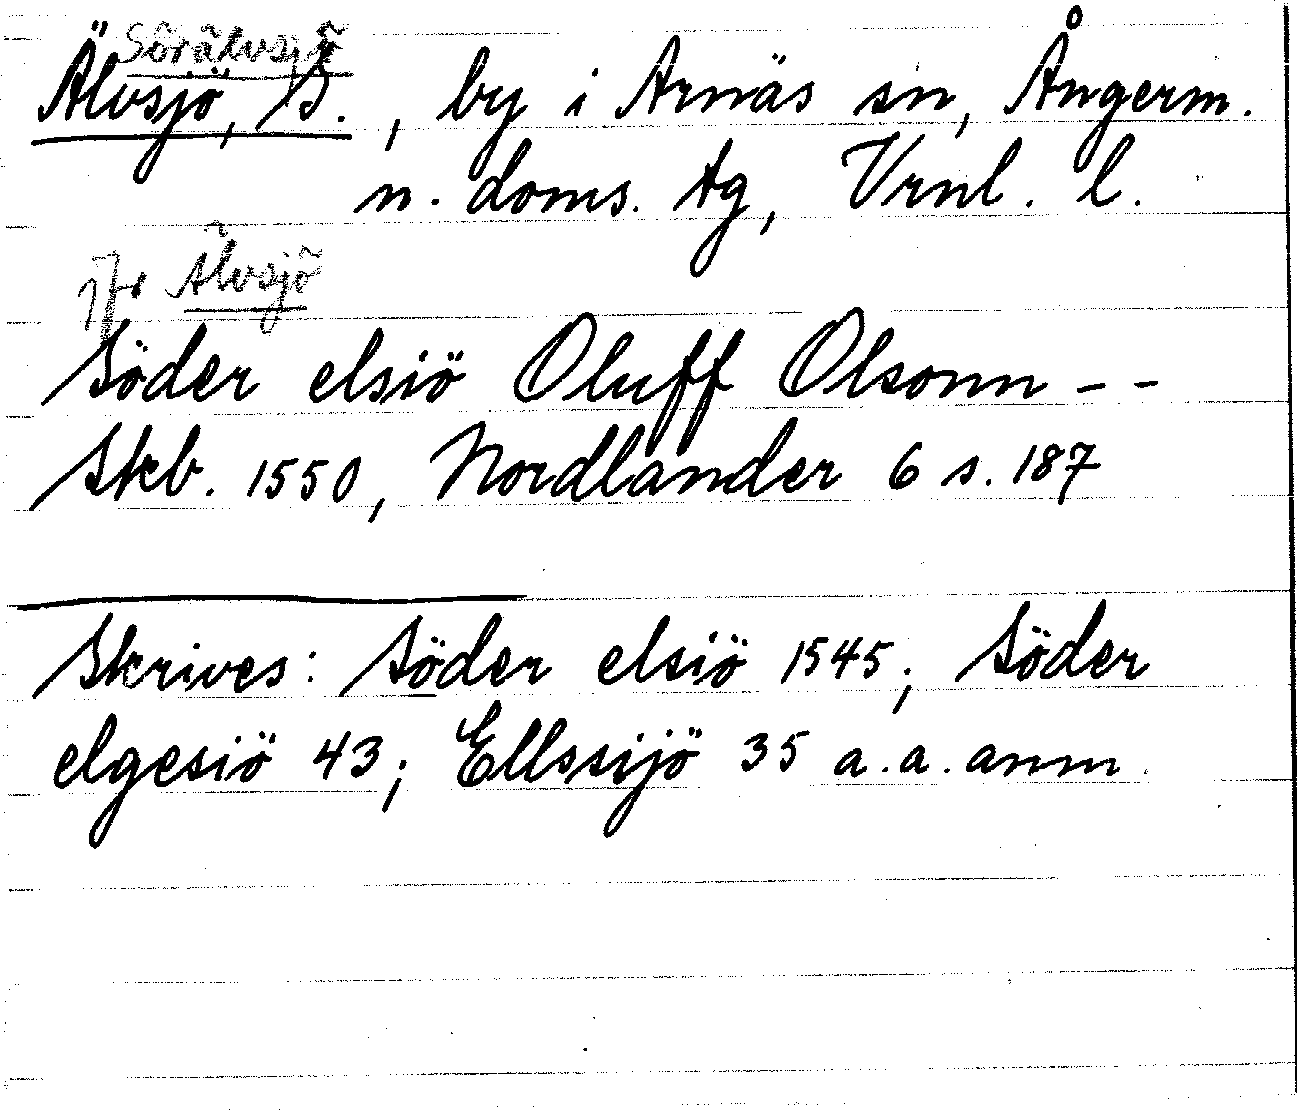 Sörälvsjö
Älvsjö, S., by i Arnäs sn, Ångerm.
n. doms. tg, Vrnl. l.
jfr Älvsjö
Söder elsiö Oluff Olsonn - -
Skb. 1550, Nordlander 6 s. 187
Skrives: Söder elsiö 1545; Söder
elgesiö 43; Ellssijö 35 a.a. anm.